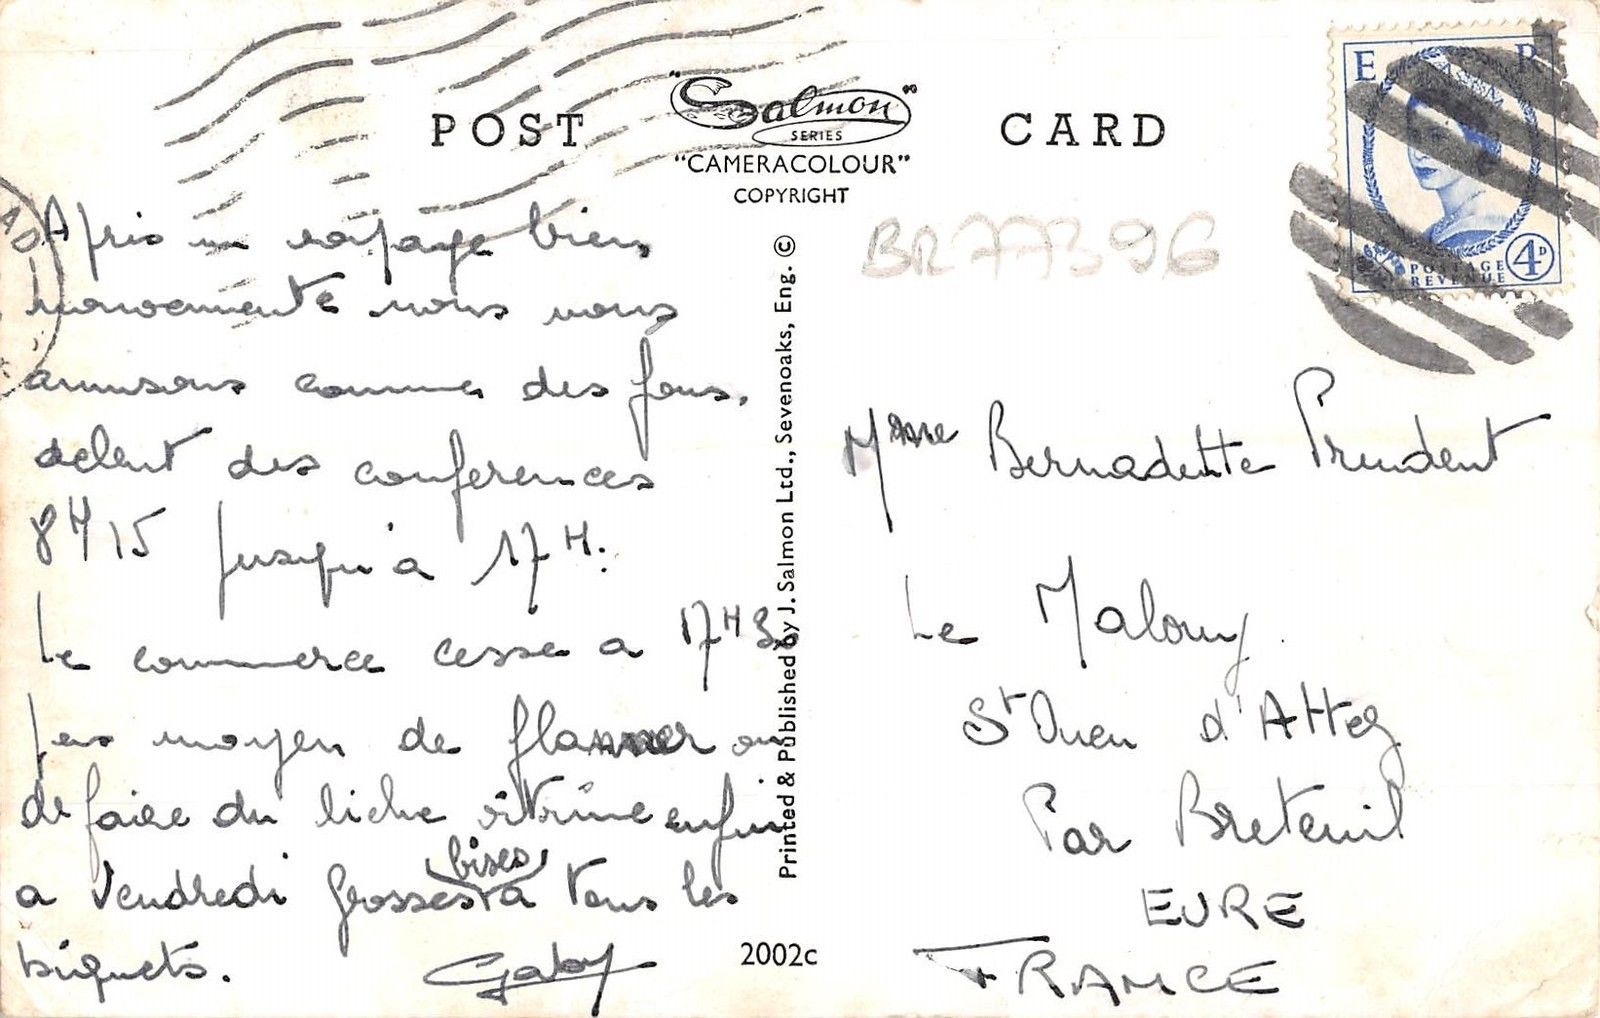 POST
"Salmon"
SERIES
"CAMERACOLOUR"
COPYRIGHT
CARD
E R
POSTAGE
REVENUE
4D
BR77396
Apris un voyage bien
mouvemente nous nous
amusons comme des fous.
debut des conferences
8H15 jusqu'à 17H.
Le commerce cesse a 17H30
pas moyen de flanner ou
de faire du liche vitrine enfin
a Vendredi grosses bises a tous les
biquets. Gaby
Printed & Published by J. Salmon Ltd., Sevenoaks, Eng. ©
2002c
Mme Bernadette Prudent
Le Malouy
St Ouen d'Attez
Par Breteuil
EURE
FRANCE